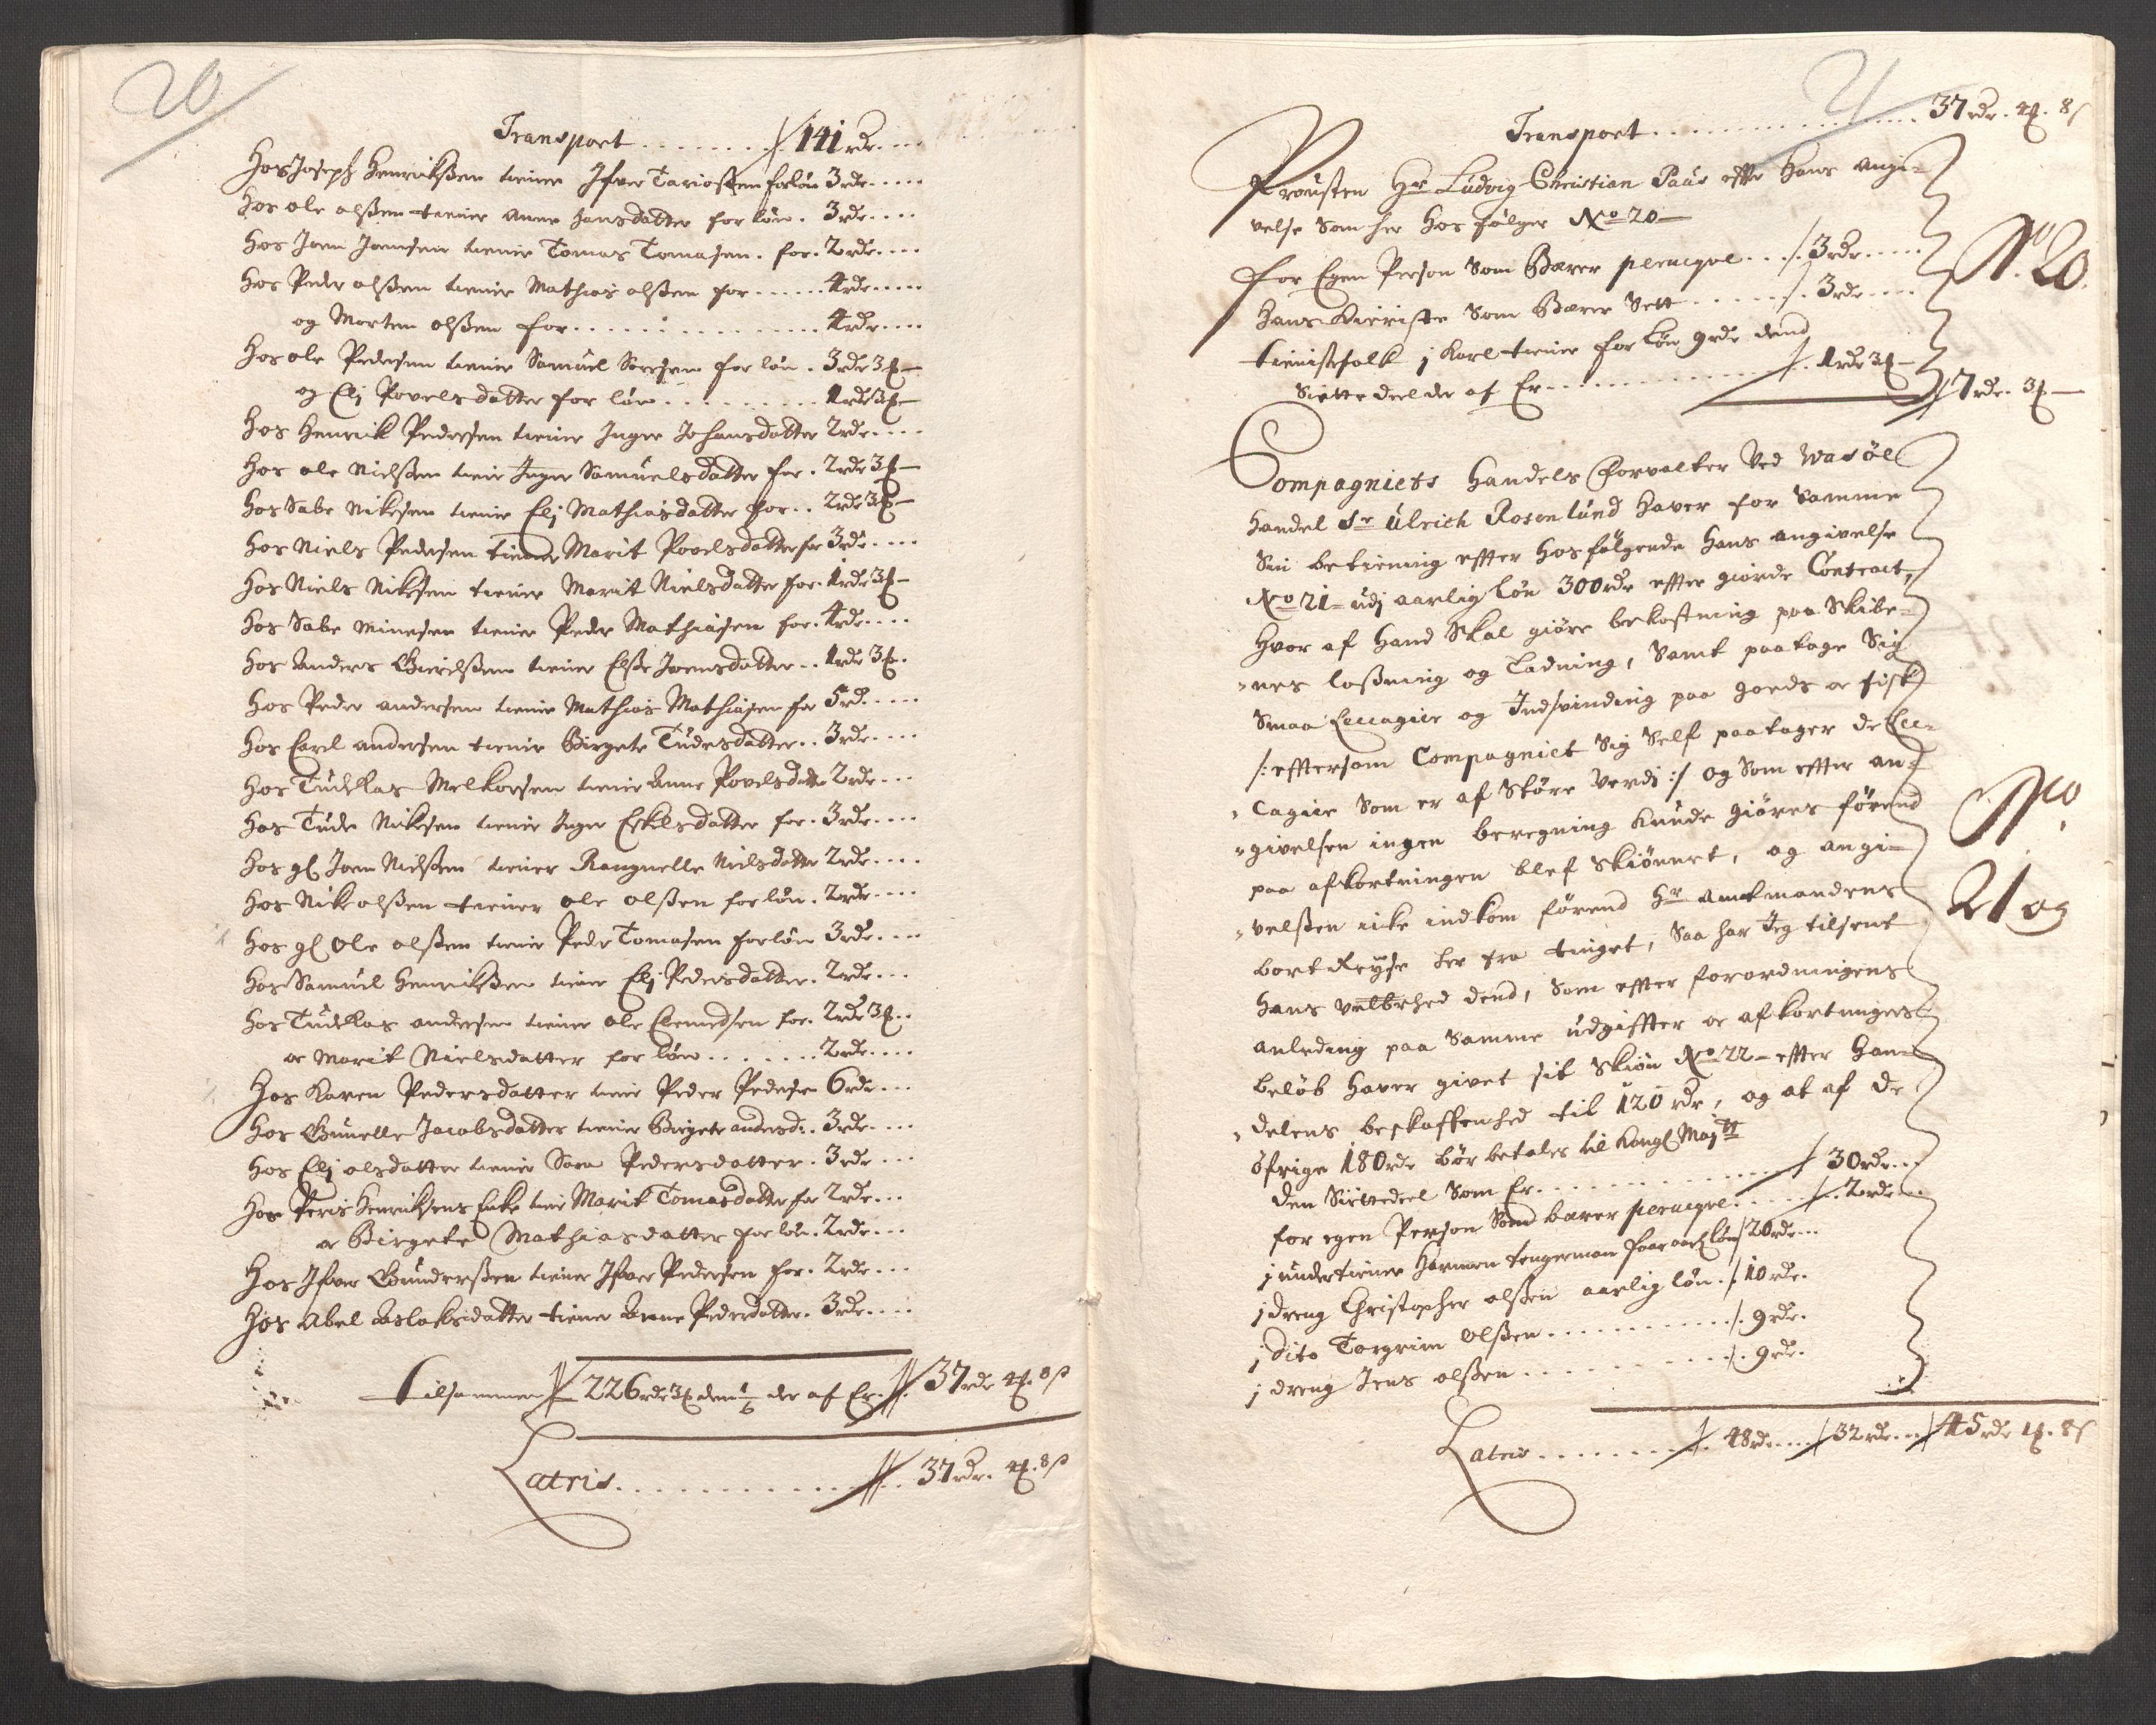 20
Transport . . . . . . . . 141 rdr. . . .
Hos Joseph Henrikßen tiener Ifver Tariosßen for løn 3 rdr. . . .
Hos ole olßen tiener Anne Hansdatter for løn . 3 rdr. . . .
Hos Joen Joensen tiener Tomas Tomasen . for . 2 rdr. . . .
Hos Peder olßen tiener Mathias olßen for . . . . . 4 rdr. . . .
og Morten olßen for . . . . . . . . . . 4 rdr. . . .
Hos ole Pedersen tiener Samuel Sørensen for løn . 3 rdr 3 ꝸ —
og Elj Povelsdatter for løn . . . . . . . 1 rdr 3 ꝸ
Hos Henrik Pedersen tiener Inger Johansdatter 2 rdr. . . .
Hos ole Nielßen tiener Inger Samuelsdatter for . 2 rdr 3 ꝸ —
Hos Sabe Nikesen tiener Elj Mathiasdatter for . . 2 rdr 3 ꝸ —
Hos Niels Pedersen tiener Marit Povelsdatter for 3 rdr. . . .
Hos Niels Nikesen tiener Marit Nielsdatter for . 1 rdr 3 ꝸ —
Hos Sabe Minesen tiener Peder Mathiasen for . 4 rdr. . . .
Hos Anders Gierelßen tiener Elße Joensdatter . . 1 rdr 3 ꝸ .
Hos Peder andersen tiener Mathias Mathiasen for 5 rd. . . . .
Hos Carl andersen tiener Birgete Tudesdatter . . 3 rdr. . . .
Hos Tudellas Melkersen tiener Anne Povelsdatter 2 rdr. . .
Hos Tude Nikesen tiener Inger Eskelsdatter for . 3 rdr. . . .
Hos gl Joen Nielßen tiener Rangnelle Nielsdatter 2 rdr. . . .
Hos Nike olßen tiener ole olßen for løn . 2 rdr. . . .
Hos gl Ole olßen tiener Peder Tomasen for løn 3 rdr. . . .
Hos Samuel Henrikßen tiener Elj Pedersdatter . 2 rdr. . .
Hos Tudellas andersen tiener ole Clemedsen for . 2 rdr 3 ꝸ . .
oc Marit Nielsdatter for løn . . . . . . 2 rdr. . . .
Hos Karen Pedersdatter tiener Peder Pedersen 6 rdr. . .
Hos Gunelle Jacobsdatter tiener Birgete andersd: . 3 rdr. . . .
Hos Elj olsdatter tiener Sara Pedersdatter . 3 rdr. . .
Hos Peris Henriksens Enke tiener Marit Tomasdatter for 2 rdr. . .
oc Birgete Mathiasdatter for løn . 2 rdr. . .
Hos Ifver Gunderßen tiener Ifver Pedersen for . 2 rdr. . .
Hos Abel Aslaksdatter tiener Anne Pedersdatter . 3 rdr. . . .
tilsammen 226 rdr 3 ꝸ den 1/6 der af Er . 37 rdr 4 ꝸ . 8 ß
Latris . . . . . . . . . . . . 37 rdr. 4 ꝸ . 8 ß
21
Transport . . . . . . . . . . . . 37 rdr. 4 ꝸ . 8 ß
Prousten Hr Ludvig Christian Paus effter Hans Angi-
velse som her Hos følger No 20 —
for Egen Person som Bærer perucqve . . . 3 rdr. . . .
Hans Kieriste som Bærer Sett . . . . . 3 rdr. . .
tienistefolk j Karl tiener for Løn 9 rdr dend
Siette deel der af Er . . . . . . . . 1 rdr 3 ꝸ —
7 rdr. 3 ꝸ —
No 20
Compagniets Handels Forvalter Ved Wadsöe
Handel Sr Ulrich Rosenlund Haver for Samme
Sin betiening effter hosfølgende Hans angivelse
No 21 - udj aarlig Løn 300 rdr effter giorde Contract,
Hvor af Hand Skal giøre bekostning paa Skibe-
-nes loßning og Ladning, Samt paatage Sig
Smaa Leccagier og Indsvinding paa goeds oc fisk
/: efftersom Compagniet Sig Self paatager de Lec-
-cagier Som er af Støre Verdi :/ og Som effter an-
-givelsen ingen beregning Kunde giøres førend
paa afkortningen blef Skiønnet, og angi-
-velßen icke indkom førend Hr Amtmandens
bort Reyse her fra tinget, Saa har Jeg tilsent
Hans Velbrhed dend, Som effter forordningens
anleding paa Samme udgiffter oc afkortninges
beløb Haver givet sit Skiøn No 22 - effter Han-
-delens beskaffenhed til 120 rdr, og at af de
öfrige 180 rdr bør betales til Kongl Maytt
den Siettedeel som Er . . . . . . . . 30 rdr. . .
for egen Person Som bærer perucqve . . . . 2 rdr. . .
j undertiener Harmen tengerman faar aarl løn 20 rdr. . .
j dreng Christopher olßen aarlig løn . 10 rdr.
j dito Torgrim olßen . . . . . . . . 9 rdr.
j dreng Jens olßen . . . . . . . . . 9 rdr.
No
21 og
Latris . . . . . . . . 48 rdr. . . . 32 rdr. . . 45 rdr 1 ꝸ . 8 ß